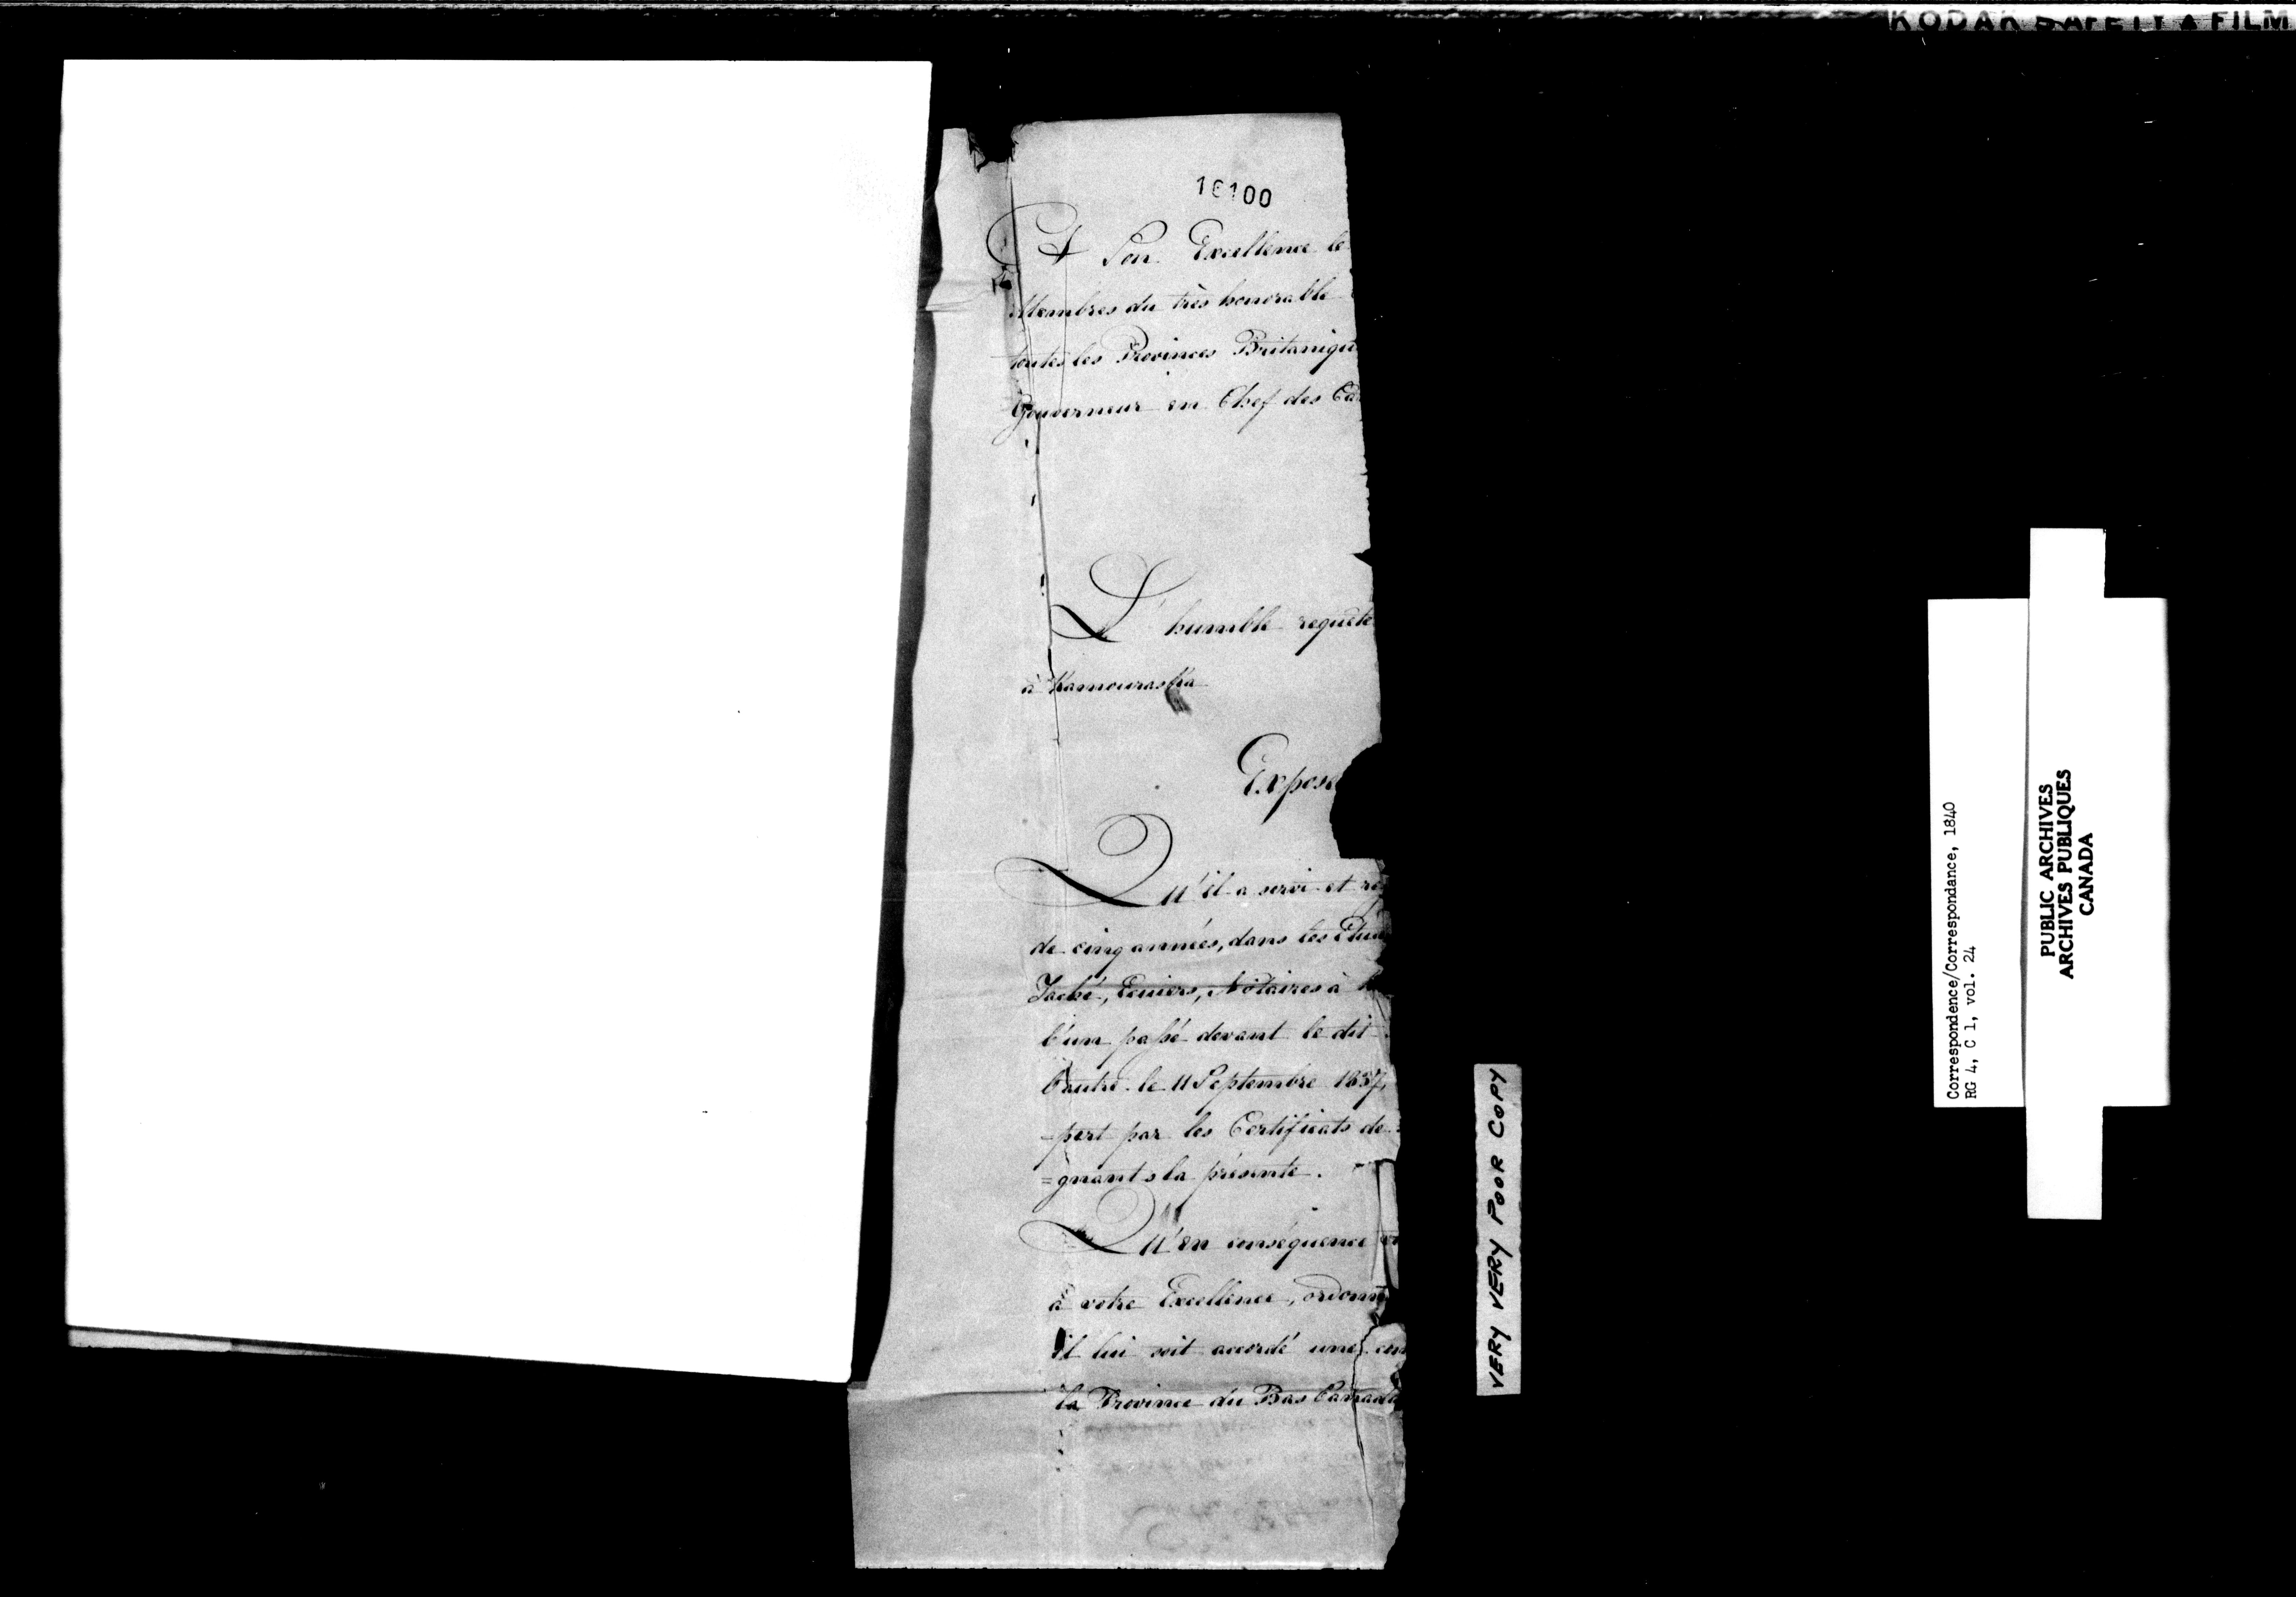 KODAK SAFETY ▲ FILM
16100
A Son Excellence le
Membres du très honorable
toutes les Provinces Britaniqu
Gouverneur en Chef des Ca
L'humble requête
à Kamouraska
Expose
Qu'il a servi et
de cinq années, dans les Etud
Taché, Ecuiers, Notaires à
l'un passé devant le dit
l'autre le 11 Septembre 1837,
=pert par les Certificats de
=gnants la présente.
Qu'en conséquence
à votre Excellence, ordonn
il lui soit accordé une com
la Province du Bas Canada
VERY VERY POOR COPY
Correspondence/Correspondance, 1840
RG 4, C 1, vol. 24
PUBLIC ARCHIVES
ARCHIVES PUBLIQUES
CANADA